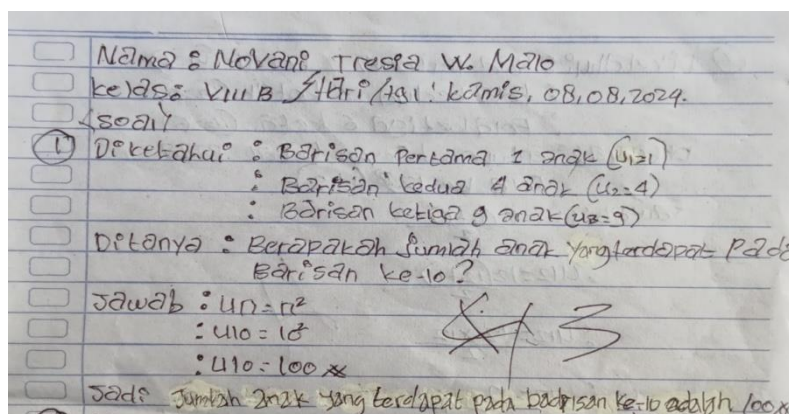 Nama : Novani Tresia W. Malo
kelas: VIII B / Hari / tgl : kamis, 08, 08, 2024.
(soal)
① Diketahui : Barisan Pertama 1 anak (u1=1)
: Barisan kedua 4 anak (u2=4)
: Barisan ketiga 9 anak (u3=9)
Ditanya : Berapakah jumlah anak yang terdapat pada
Barisan ke-10?
Jawab : un = n²
: u10 = 10²
: u10 = 100
3
Jadi: Jumlah anak yang terdapat pada badrisan ke-10 adalah 100